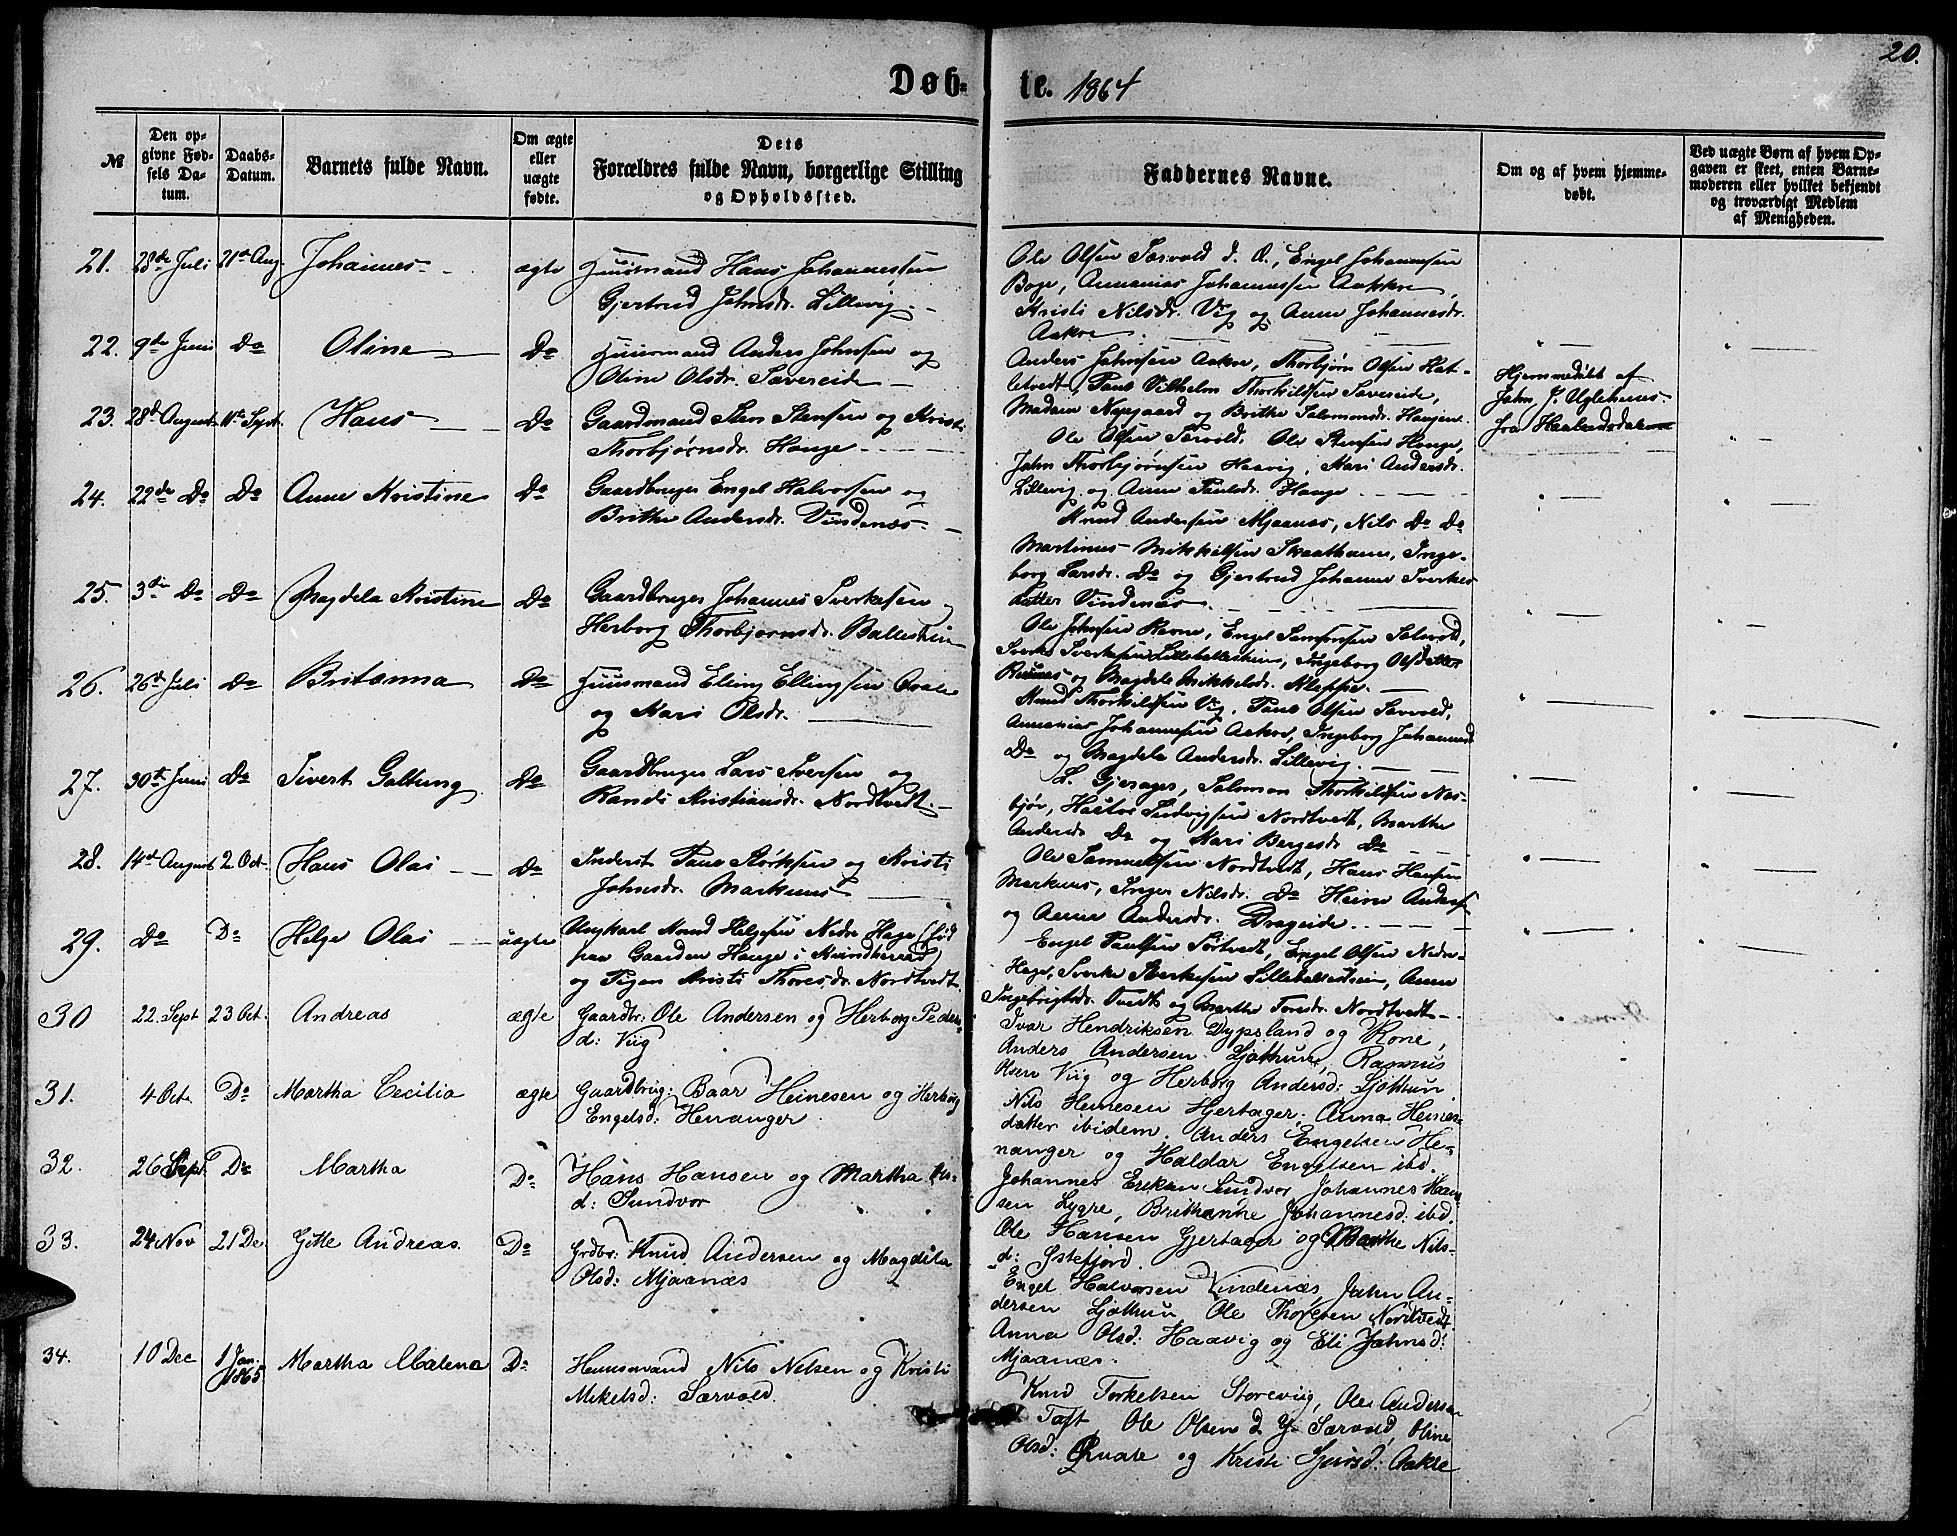 20.
Døb-te. 1864
№
Den opgivne Fødsels Datum.
Daabs-Datum.
Barnets fulde Navn.
Om ægte eller uægte fødte.
Dets Forældres fulde Navn, borgerlige Stilling og Opholdssted.
Faddernes Navne.
Om og af hvem hjemmedøbt.
Ved uægte Børn af hvem Opgaven er skeet, enten Barnemoderen eller hvilket bekjendt og troværdigt Medlem af Menigheden.
21. 28de Juli 21de Aug. Johannes ægte Huusmand Hans Johannessen
Gjertrud Johnsdr. Lillevig
Ole Olsen Særvold d. Æ., Engel Johannesen
Boge, Annanias Johannessen Aakre,
Kristi Nilsdr. Vig og Anne Johannesdr.
Aakre
22. 9de Juni Do Oline Do Huusmand Anders Johnsen og
Oline Olsdr. Sævereide
Anders Johnsen Aakre, Thorbjørn Olsen Kat-
letvedt, Paul Vilhelm Thorkildsen Sævereide,
Madam Nygaard og Brithe Salomonsdr. Haugen
Hjemmedøbt af
John J. Uglehuus
fra Haalandsdalen
23. 28de August 11te Sept. Hans Do Gaardmand Sten Stensen og Kristi
Thorbjørnsdr. Hauge
Ole Olsen Særvold, Ole Stensen Hauge,
John Thorbjørnsen Haavig, Mari Andersdr.
Lillevig og Anne Paulsdr. Hauge
24. 22de Do Do Anne Kristine Do Gaardbruger Engel Halvorsen og
Brithe Andersdr. Vindenæs
Knud Andersen Mjaanæs, Nils Do Do
Martinus Mikkelsen Skaathamn, Inge-
borg Larsdr. Do og Gjertrud Johanne Sverkes-
datter Vindenæs
25. 3die Do Do Magdela Kristine Do Gaardbruger Johannes Sverkesen og
Herborg Thorbjørnsdr. Ballesheim
Ole Johnsen Ravne, Engel Samsonsen Solvold,
Sverke Sverkesen Lilleballesheim, Ingeborg Olsdatter
og Magdele Mikkelsdr. Kleppe
26. 26de Juli Do Britanna Do Huusmand Elling Ellingsen
og Mari Olsdr.
Knud Thorkildsen Vig, Paul Olsen Særvold,
Annanias Johannesen Aakre, Ingeborg Johannesd
Do og Magdele Andersdr. Lillevig
27. 30te Juni Do Sivert Galtung Do Gaardbruger Lars Iversen og
Randi Kristiansdr. Nordtvedt
L. Gjerager, Salomon Thorkildsen Næs-
bjør, Ludvigsen Nordtvedt, Marthe
Andersdr. Do og Mari Børgesdr. Do
28. 14de August 2 Oct. Hans Olai Do Inderst Paul Størksen og Kristi
Johnsdr. Markhuus
Ole Samuelsen Nordtvedt, Hans Hansen
Markhuus, Inger Nilsdr. Do Heine Anders
og Anne Andersdr. Drageide
29. Do Do Helge Olai uægte Ungkarl Knud Helgesen Nedre Hage (født
paa Gaarden Hauge i Kvindherred)
og Pigen Kristi Thoresdr. Nordtvedt
Engel Paulsen Sørtvedt, Engel Olsen Nedre-
Hage, Sverke Sverkesen Lilleballesheim, Anne
Ingebrigtsdr. Tvedt og Marthe Toresdr. Nordtvedt
30 22. Sept 23 Oct. Andreas ægte Gaardbr: Ole Andersen og Herborg Peders-
d: Viig
Ivar Hendriksen Dypsland og Kone,
Anders Andersen Ljothun, Rasmus
Viig og Herborg Andersd: Ljothun
31. 4 Oct. Do Martha Cecilia ægte Gaardbrug: Baar Heinesen og Herborg
Engelsd: Henanger
Nils Heinesen Hjertager, Anna Heines-
datter ibidem, Anders Engelsen He-
nanger og Haldor Engelsen ibd.
32. 26 Sept Do Martha Do Hans Hansen og Martha
d: Sundvor
Johannes Eriksen Sundvor Johannes Han-
sen Lygre, Brithanne Johannesd: ibd.
Ole Hansen Gjertager og Marthe Nils-
d: Østefjord.
33. 24 Nov 21 De Gitle Andreas. Do Grdbr: Knud Andersen og Magdela
Olsd: Mjaanæs
Engel Halvorsen Vindenæs, John An-
dersen Ljothun Ole Thoresen Nordtvedt
Anna Olsd: Haavig og Eli Johnsd:
Mjaanæs.
34. 10 Dec 1 Jan. 1865 Martha Malena Do Huusmand Nils Nilsen og Kristi
Mikelsd: Særvold.
Knud Torkelsen Storeviig, Ole Andersen
Toft, Ole Olsen d. Y. Særvold, Oline
Olsd: og Kristi Sjursd: Aakre